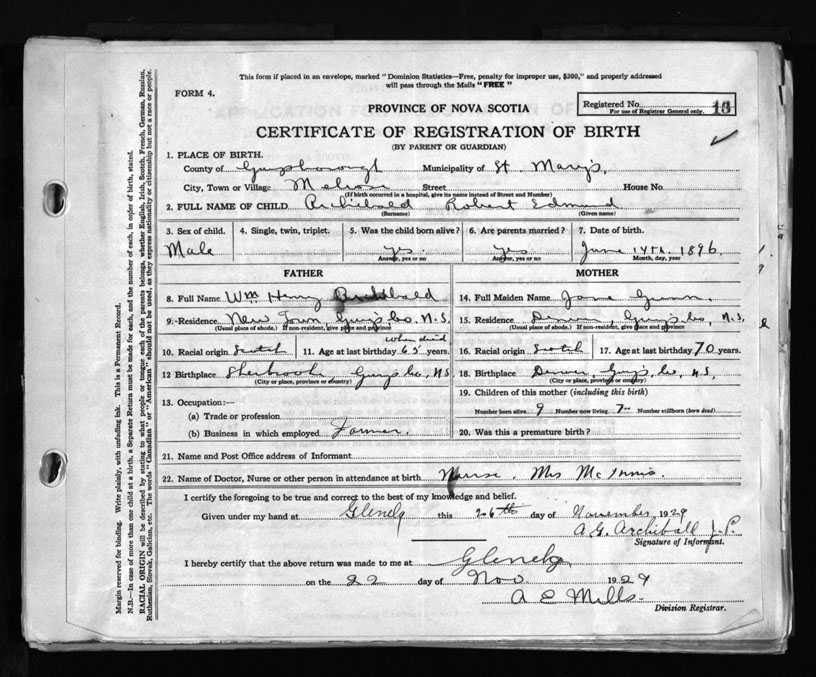 This form if placed in an envelope, marked "Dominion Statistics—Free, penalty for improper use, $300," and properly addressed
will pass through the Mails "FREE"
FORM 4.
PROVINCE OF NOVA SCOTIA
Registered No. 13
For use of Registrar General only.
CERTIFICATE OF REGISTRATION OF BIRTH
(BY PARENT OR GUARDIAN)
1. PLACE OF BIRTH.
County of Guysborough Municipality of St. Mary's,
City, Town or Village Melrose Street House No
(If birth occurred in a hospital, give its name instead of Street and Number)
2. FULL NAME OF CHILD Archibald Robert Edmund
(Surname) (Given name)
3. Sex of child. 4. Single, twin, triplet. 5. Was the child born alive? 6. Are parents married? 7. Date of birth.
Male yes. yes June 14th. 1896.
Answer, yes or no Answer, yes or no Month, day, year
FATHER MOTHER
8. Full Name Wm Henry Archibald 14. Full Maiden Name Jane
9. Residence New Town, Guys. Co. N.S. 15. Residence Guys. Co, N.S.
(Usual place of abode.) If non-resident, give place and province (Usual place of abode.) If non-resident, give place and province
when died
10. Racial origin Scotch 11. Age at last birthday 65 years. 16. Racial origin Scotch 17. Age at last birthday 70 years.
12 Birthplace Sherbrooke, Guys. Co, N.S. 18. Birthplace Guys, Co, N.S,
(City or place, province or country) (City or place, province or country)
13. Occupation:— 19. Children of this mother (including this birth)
(a) Trade or profession Number born alive 9 Number now living 7 Number stillborn (born dead)
(b) Business in which employed Farmer. 20. Was this a premature birth?
21. Name and Post Office address of Informant
22. Name of Doctor, Nurse or other person in attendance at birth Nurse. Mrs McInnis.
I certify the foregoing to be true and correct to the best of my knowledge and belief.
Given under my hand at Glenelg this 26th day of November 1929
A.G. Archibald J.P.
Signature of Informant.
I hereby certify that the above return was made to me at Glenelg
on the 22 day of Nov 1929
A E Mills
Division Registrar.
Margin reserved for binding. Write plainly, with unfading ink. This is a Permanent Record.
N.B.—In case of more than one child at a birth, a Separate Return must be made for each, and the number of each, in order of birth, stated.
RACIAL ORIGIN will be described by stating to what people or tongue each of the parents belongs, whether English, Irish, Scotch, French, German, Russian,
Ruthenian, Slovak, Galician, etc. The words "Canadian" or "American" should not be used, as they express nationality or citizenship but not a race or people.